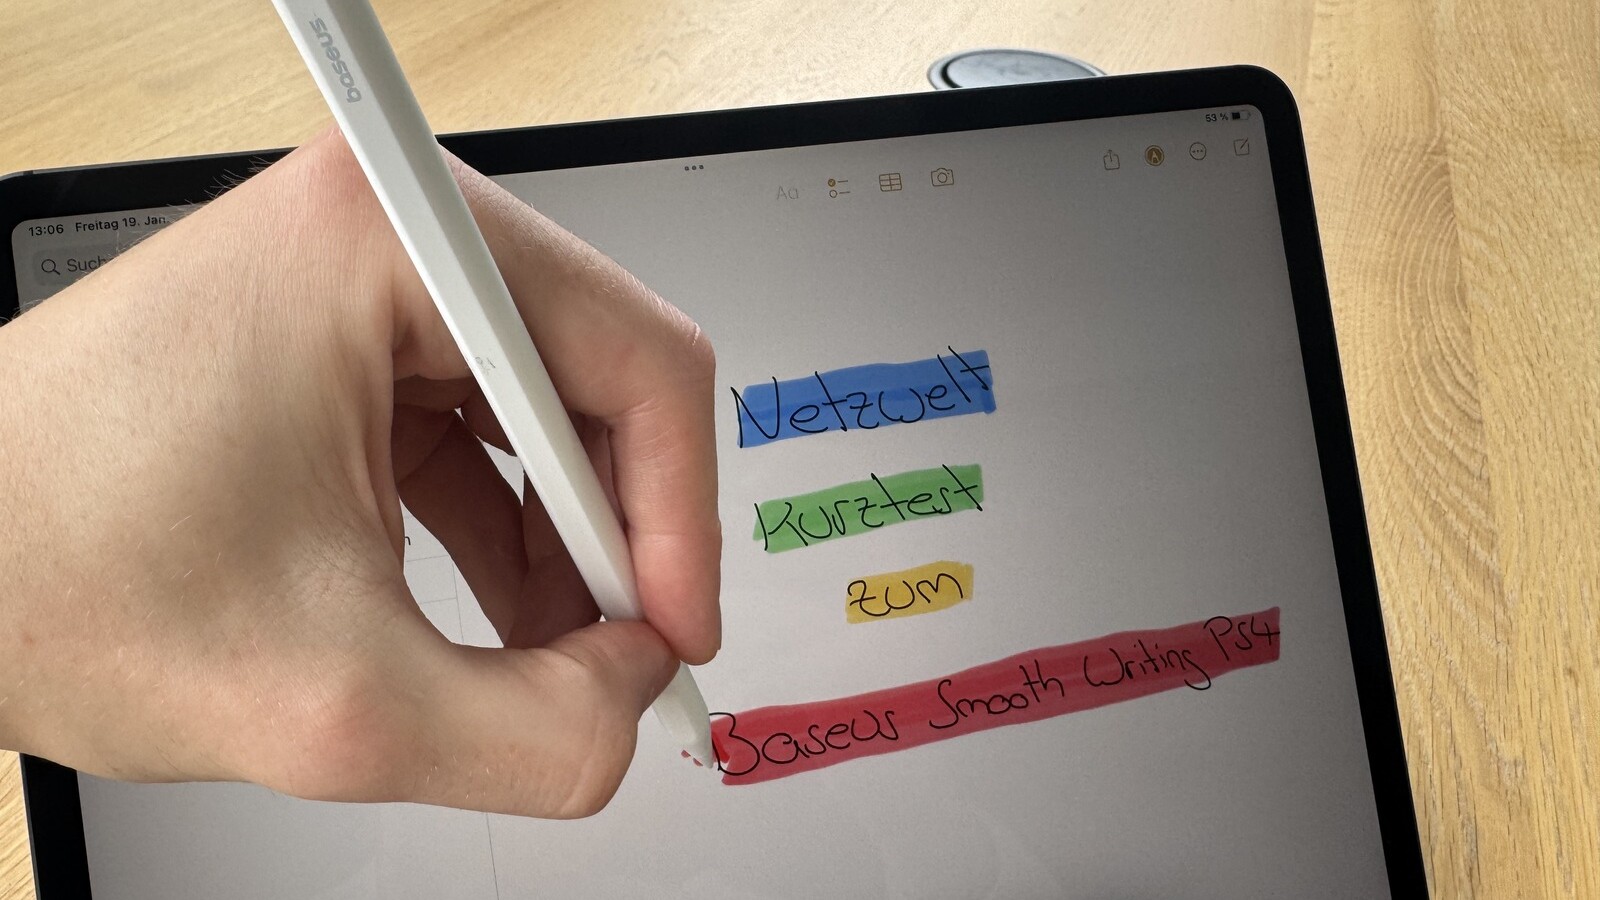 baseus
53 %
Aa
13:06 Freitag 19. Jan
Such
Netzwelt
Kurztest
zum
Baseus Smooth Writing Ps4